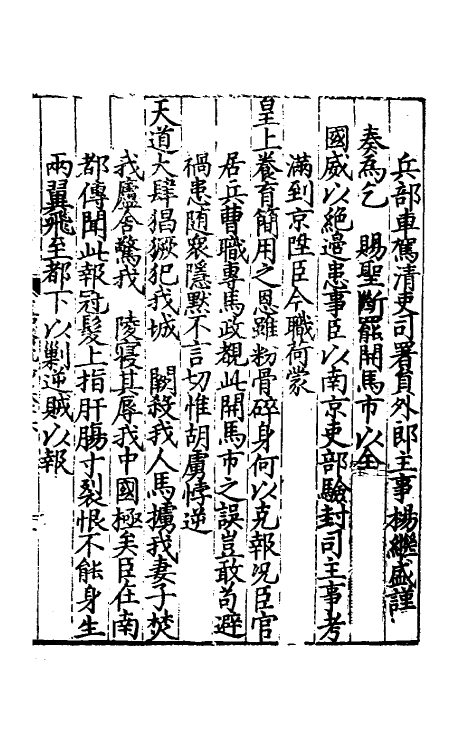 兵部車駕清吏司署員外郎主事楊繼盛謹
奏為乞　賜聖斷罷開馬市以全
國威以絕邉患事臣以南京吏部驗封司主事考
滿到京陞臣今職荷蒙
皇上養育簡用之恩雖粉骨碎身何以克報况臣官
居兵曹職專馬政覩此開馬市之誤豈敢苟避
禍患随衆隱默不言切惟胡虜悖逆
天道大肆猖獗犯我城　闕殺我人馬擄我妻子焚
我廬舍驚我　陵寝其辱我中國極矣臣在南
都傳聞此報冠髮上指肝腸寸裂恨不能身生
兩翼飛至都下以剿逆賊以報